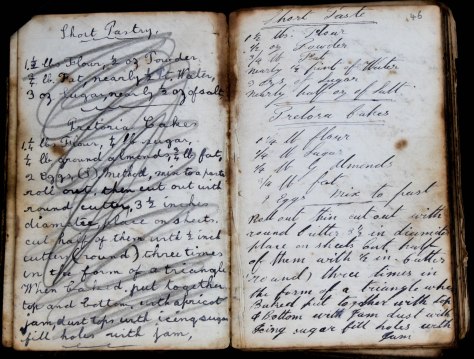 Short Pastry.
1¼ lbs Flour, ½ oz Powder
¾ lb. Fat, nearly ½ pt. Water,
3 oz sugar, nearly ½ oz of salt
Pretoria Cakes
1¼ lbs Flour, ¾ lb sugar,
¼ lb ground almonds, ¾ lb fat,
2 Eggs, method, mix to a paste
roll out, then cut out with
round cutter, 3½ inches
diameter, place on sheets.
cut half of them with ½ inch
cutter (round) three times
in the form of a triangle
When baked, put together
top and bottom, with apricot
jam, dust tops with icing sugar
fill holes with jam,
146
Short Paste
lb. Flour
½ oz Powder
¾ lb Fat
nearly ½ pint of Water
3 ozs Sugar
nearly half oz of Salt.
Pretora Cakes
lb flour
¾ lb Sugar
¼ lb G Almonds
¾ lb fat
2 eggs mix to past
Roll out thin cut out with
round Cutter 3½ in diameter
place on sheets cut half
of them with ½ in Cutter
(round) three times in
the form of a triangle when
Baked put together with top
& bottom with Jam dust with
Icing sugar fill holes with
Jam